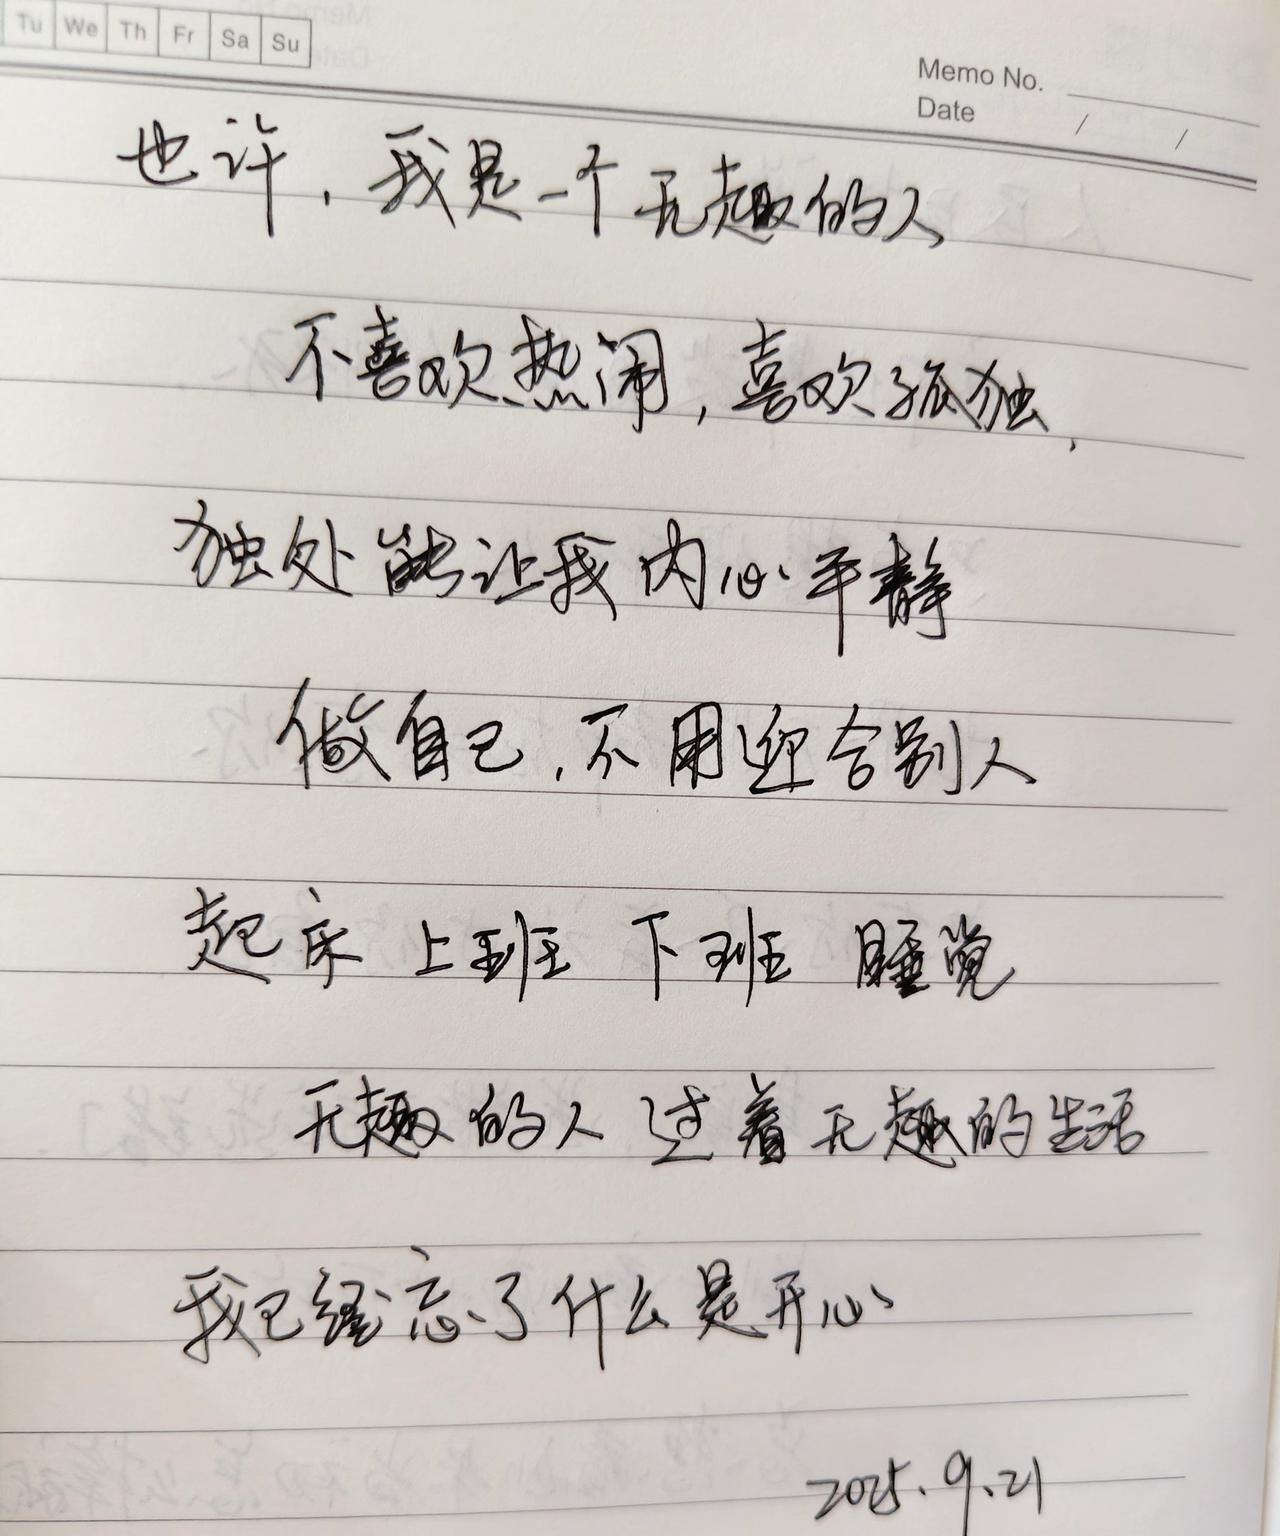 Tu We Th Fr Sa Su
Memo No.
Date / /
也许，我是一个无趣的人
不喜欢热闹，喜欢孤独，
独处能让我内心平静
做自己，不用迎合别人
起床 上班 下班 睡觉
无趣的人 过着无趣的生活
我已经忘了什么是开心
2025.9.21